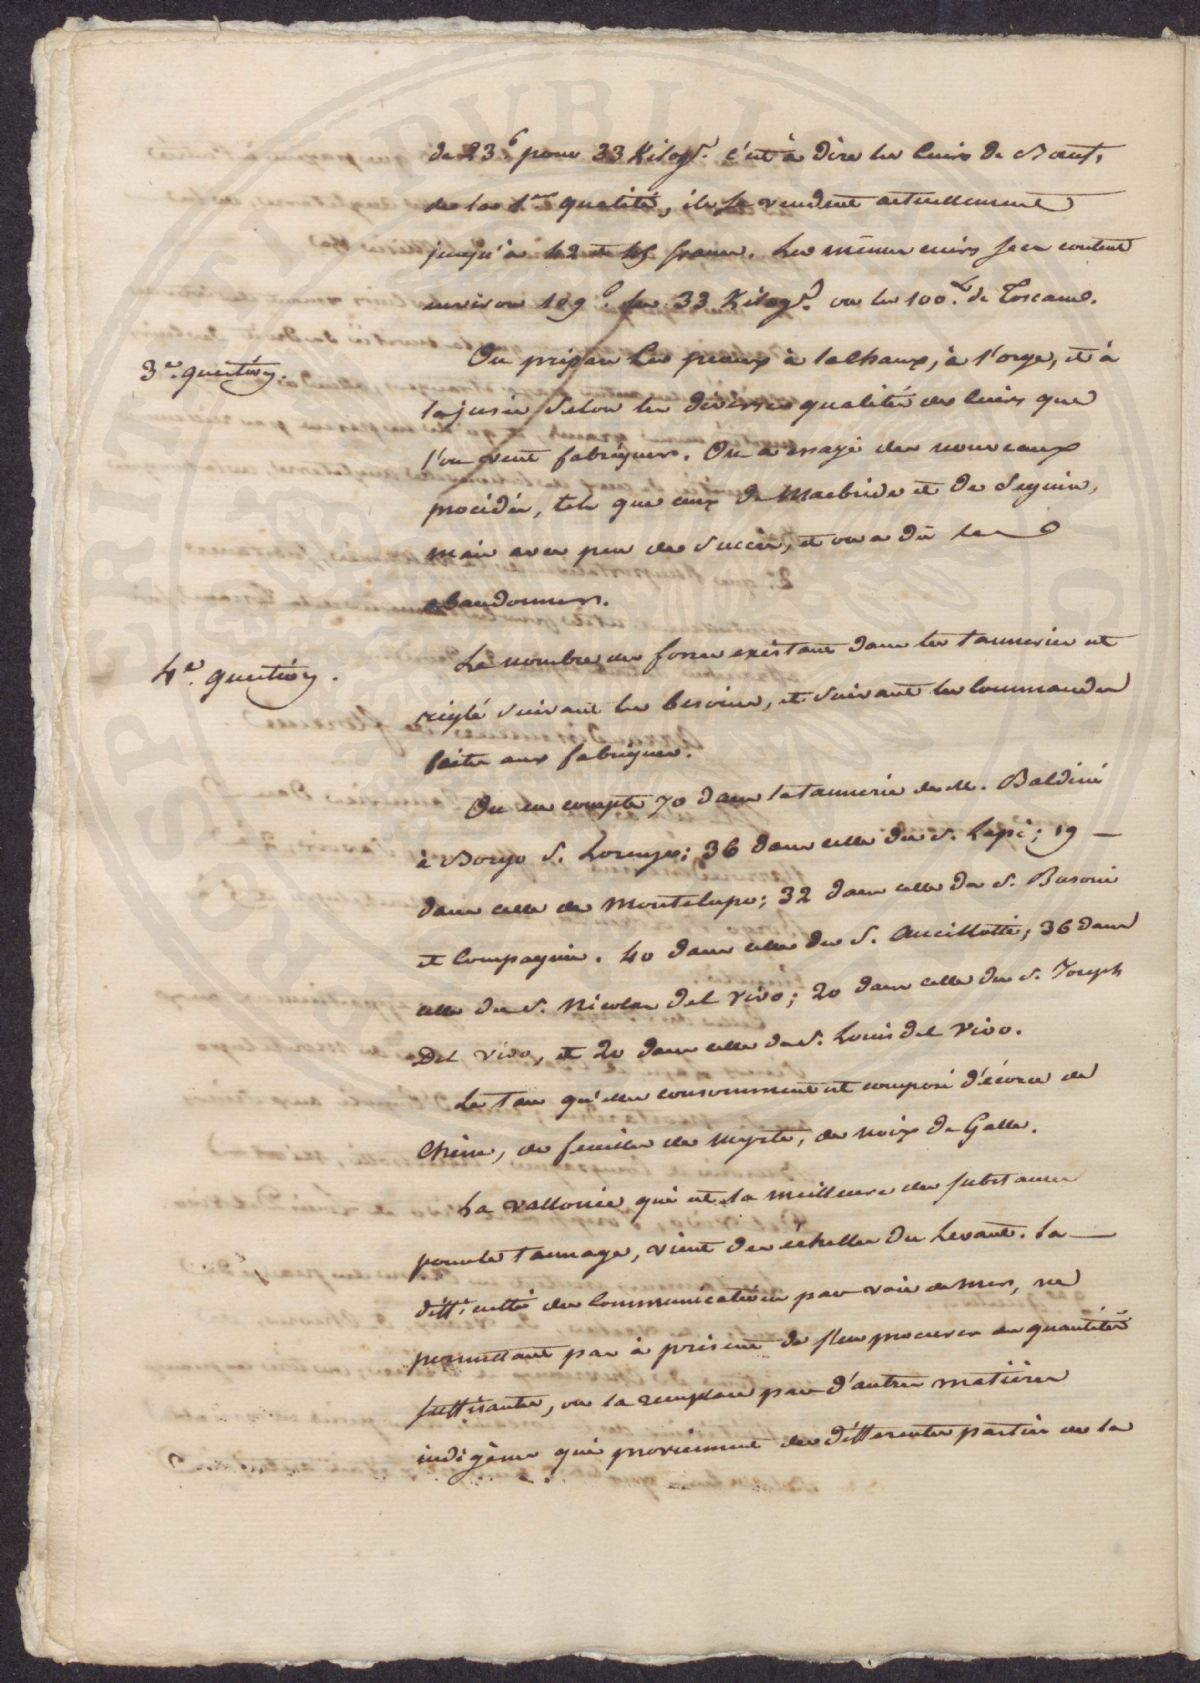 de 23 f pour 33 Kilog.s c'est à dire les Cuirs de Bœuf,
de la 1.ere qualité, ils se vendent actuellement
jusqu'à 42 et 45 francs. Les mêmes cuirs secs coutent
environ 109 f les 33 Kilog.s ou les 100 L. de Toscane.
3.e question.
On prépare les peaux à la chaux, à l'orge, et à
la jusée selon les diverses qualités des Cuirs que
l'on veut fabriquer. On a essayé des nouveaux
procédés, tels que ceux de Macbride et de Seguin,
mais avec peu de succès, et on a dû les
abandonner.
4.e question.
Le nombre des fosses existant dans les tanneries est
réglé suivant les besoins, et suivant les Commandes
faites aux fabriques.
On en compte 70 dans la tannerie de M. Baldini
à Borgo S. Lorenzo; 36 dans celle du S. Lapi; 19
dans celle de Montelupo; 32 dans celle du S. Busoni
et Compagnie. 40 dans celle du S. Ancillotti; 36 dans
celle du S. Nicolas Del Vivo; 20 dans celle du S. Joseph
Del Vivo, et 20 dans celle du S. Louis Del Vivo.
Le Tan qu'elles consomment est composé d'écorce de
Chêne, de feuilles de Myrte, de noix de Galle.
La Vallonée qui est la meilleure des substances
pour le tannage, vient des échelles du Levant. La
difficulté des Communications par voie de Mer, ne
permettant pas à présent de s'en procurer en quantités
suffisantes, on la remplace par d'autres matières
indigènes qui proviennent des différentes parties de la